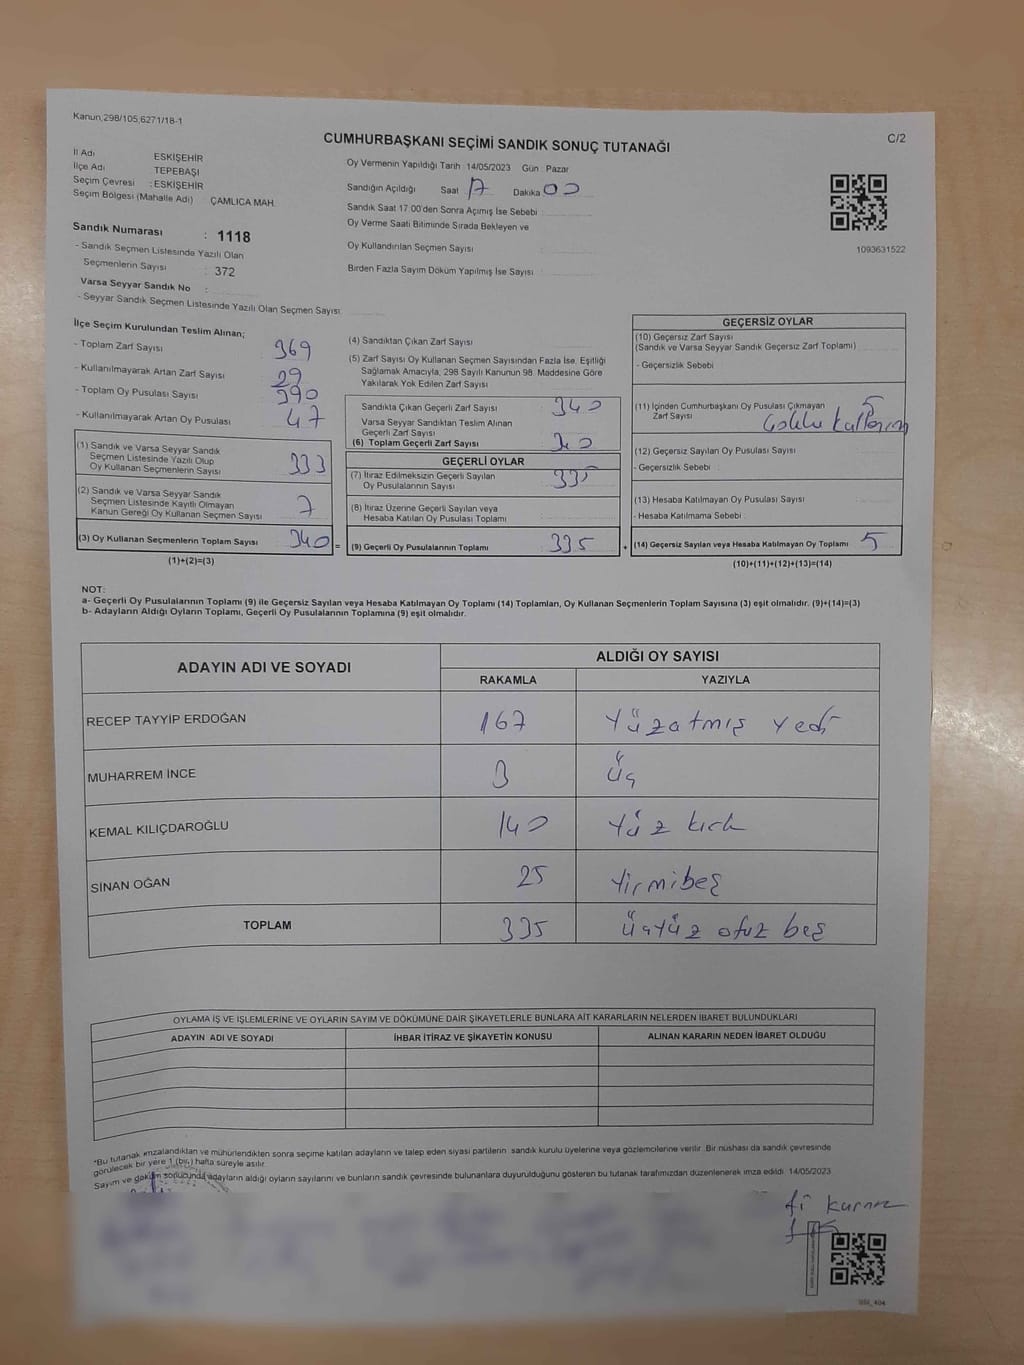 Kanun,298/105,6271/18-1
C/2
CUMHURBAŞKANI SEÇİMİ SANDIK SONUÇ TUTANAĞI
İl Adı ESKİŞEHİR
İlçe Adı TEPEBAŞI
Seçim Çevresi : ESKİŞEHİR
Seçim Bölgesi (Mahalle Adı) ÇAMLICA MAH.
Oy Vermenin Yapıldığı Tarih : 14/05/2023 Gün : Pazar
Sandığın Açıldığı Saat 17 Dakika 00
Sandık Saat 17:00'den Sonra Açımış İse Sebebi
Oy Verme Saati Bitiminde Sırada Bekleyen ve
Oy Kullandırılan Seçmen Sayısı
Birden Fazla Sayım Döküm Yapılmış İse Sayısı
1093631522
Sandık Numarası : 1118
- Sandık Seçmen Listesinde Yazılı Olan
Seçmenlerin Sayısı : 372
Varsa Seyyar Sandık No :
- Seyyar Sandık Seçmen Listesinde Yazılı Olan Seçmen Sayısı:
İlçe Seçim Kurulundan Teslim Alınan;
- Toplam Zarf Sayısı 369
- Kullanılmayarak Artan Zarf Sayısı 29
- Toplam Oy Pusulası Sayısı 390
- Kullanılmayarak Artan Oy Pusulası 47
(1) Sandık ve Varsa Seyyar Sandık
Seçmen Listesinde Yazılı Olup
Oy Kullanan Seçmenlerin Sayısı 333
(2) Sandık ve Varsa Seyyar Sandık
Seçmen Listesinde Kayıtlı Olmayan
Kanun Gereği Oy Kullanan Seçmen Sayısı 7
(3) Oy Kullanan Seçmenlerin Toplam Sayısı 340 =
(1)+(2)=(3)
(4) Sandıktan Çıkan Zarf Sayısı
(5) Zarf Sayısı Oy Kullanan Seçmen Sayısından Fazla İse, Eşitliği
Sağlamak Amacıyla, 298 Sayılı Kanunun 98. Maddesine Göre
Yakılarak Yok Edilen Zarf Sayısı
Sandıkta Çıkan Geçerli Zarf Sayısı 340
Varsa Seyyar Sandıktan Teslim Alınan
Geçerli Zarf Sayısı
(6) Toplam Geçerli Zarf Sayısı
GEÇERLİ OYLAR
(7) İtiraz Edilmeksizin Geçerli Sayılan
Oy Pusulalarının Sayısı 335
(8) İtiraz Üzerine Geçerli Sayılan veya
Hesaba Katılan Oy Pusulası Toplamı
(9) Geçerli Oy Pusulalarının Toplamı 335 +
GEÇERSİZ OYLAR
(10) Geçersiz Zarf Sayısı
(Sandık ve Varsa Seyyar Sandık Geçersiz Zarf Toplamı)
- Geçersizlik Sebebi
(11) İçinden Cumhurbaşkanı Oy Pusulası Çıkmayan 5
Zarf Sayısı
(12) Geçersiz Sayılan Oy Pusulası Sayısı
- Geçersizlik Sebebi
(13) Hesaba Katılmayan Oy Pusulası Sayısı
- Hesaba Katılmama Sebebi
(14) Geçersiz Sayılan veya Hesaba Katılmayan Oy Toplamı 5
(10)+(11)+(12)+(13)=(14)
NOT:
a- Geçerli Oy Pusulalarının Toplamı (9) ile Geçersiz Sayılan veya Hesaba Katılmayan Oy Toplamı (14) Toplamları, Oy Kullanan Seçmenlerin Toplam Sayısına (3) eşit olmalıdır. (9)+(14)=(3)
b- Adayların Aldığı Oyların Toplamı, Geçerli Oy Pusulalarının Toplamına (9) eşit olmalıdır.
ADAYIN ADI VE SOYADI
ALDIĞI OY SAYISI
RAKAMLA YAZIYLA
RECEP TAYYİP ERDOĞAN 167 Yüzatmış yedi
MUHARREM İNCE 3 Üç
KEMAL KILIÇDAROĞLU 140 Yüz kırk
SİNAN OĞAN 25 Yirmibeş
TOPLAM 335 Üçyüz otuz beş
OYLAMA İŞ VE İŞLEMLERİNE VE OYLARIN SAYIM VE DÖKÜMÜNE DAİR ŞİKAYETLERLE BUNLARA AİT KARARLARIN NELERDEN İBARET BULUNDUKLARI
ADAYIN ADI VE SOYADI İHBAR İTİRAZ VE ŞİKAYETİN KONUSU ALINAN KARARIN NEDEN İBARET OLDUĞU
*Bu tutanak imzalandıktan ve mühürlendikten sonra seçime katılan adayların ve talep eden siyasi partilerin sandık kurulu üyelerine veya gözlemcilerine verilir. Bir nüshası da sandık çevresinde
görülecek bir yere 1 (bir) hafta süreyle asılır.
Sayım ve döküm sonucunda adayların aldığı oyların sayılarını ve bunların sandık çevresinde bulunanlara duyurulduğunu gösteren bu tutanak tarafımızdan düzenlenerek imza edildi. 14/05/2023